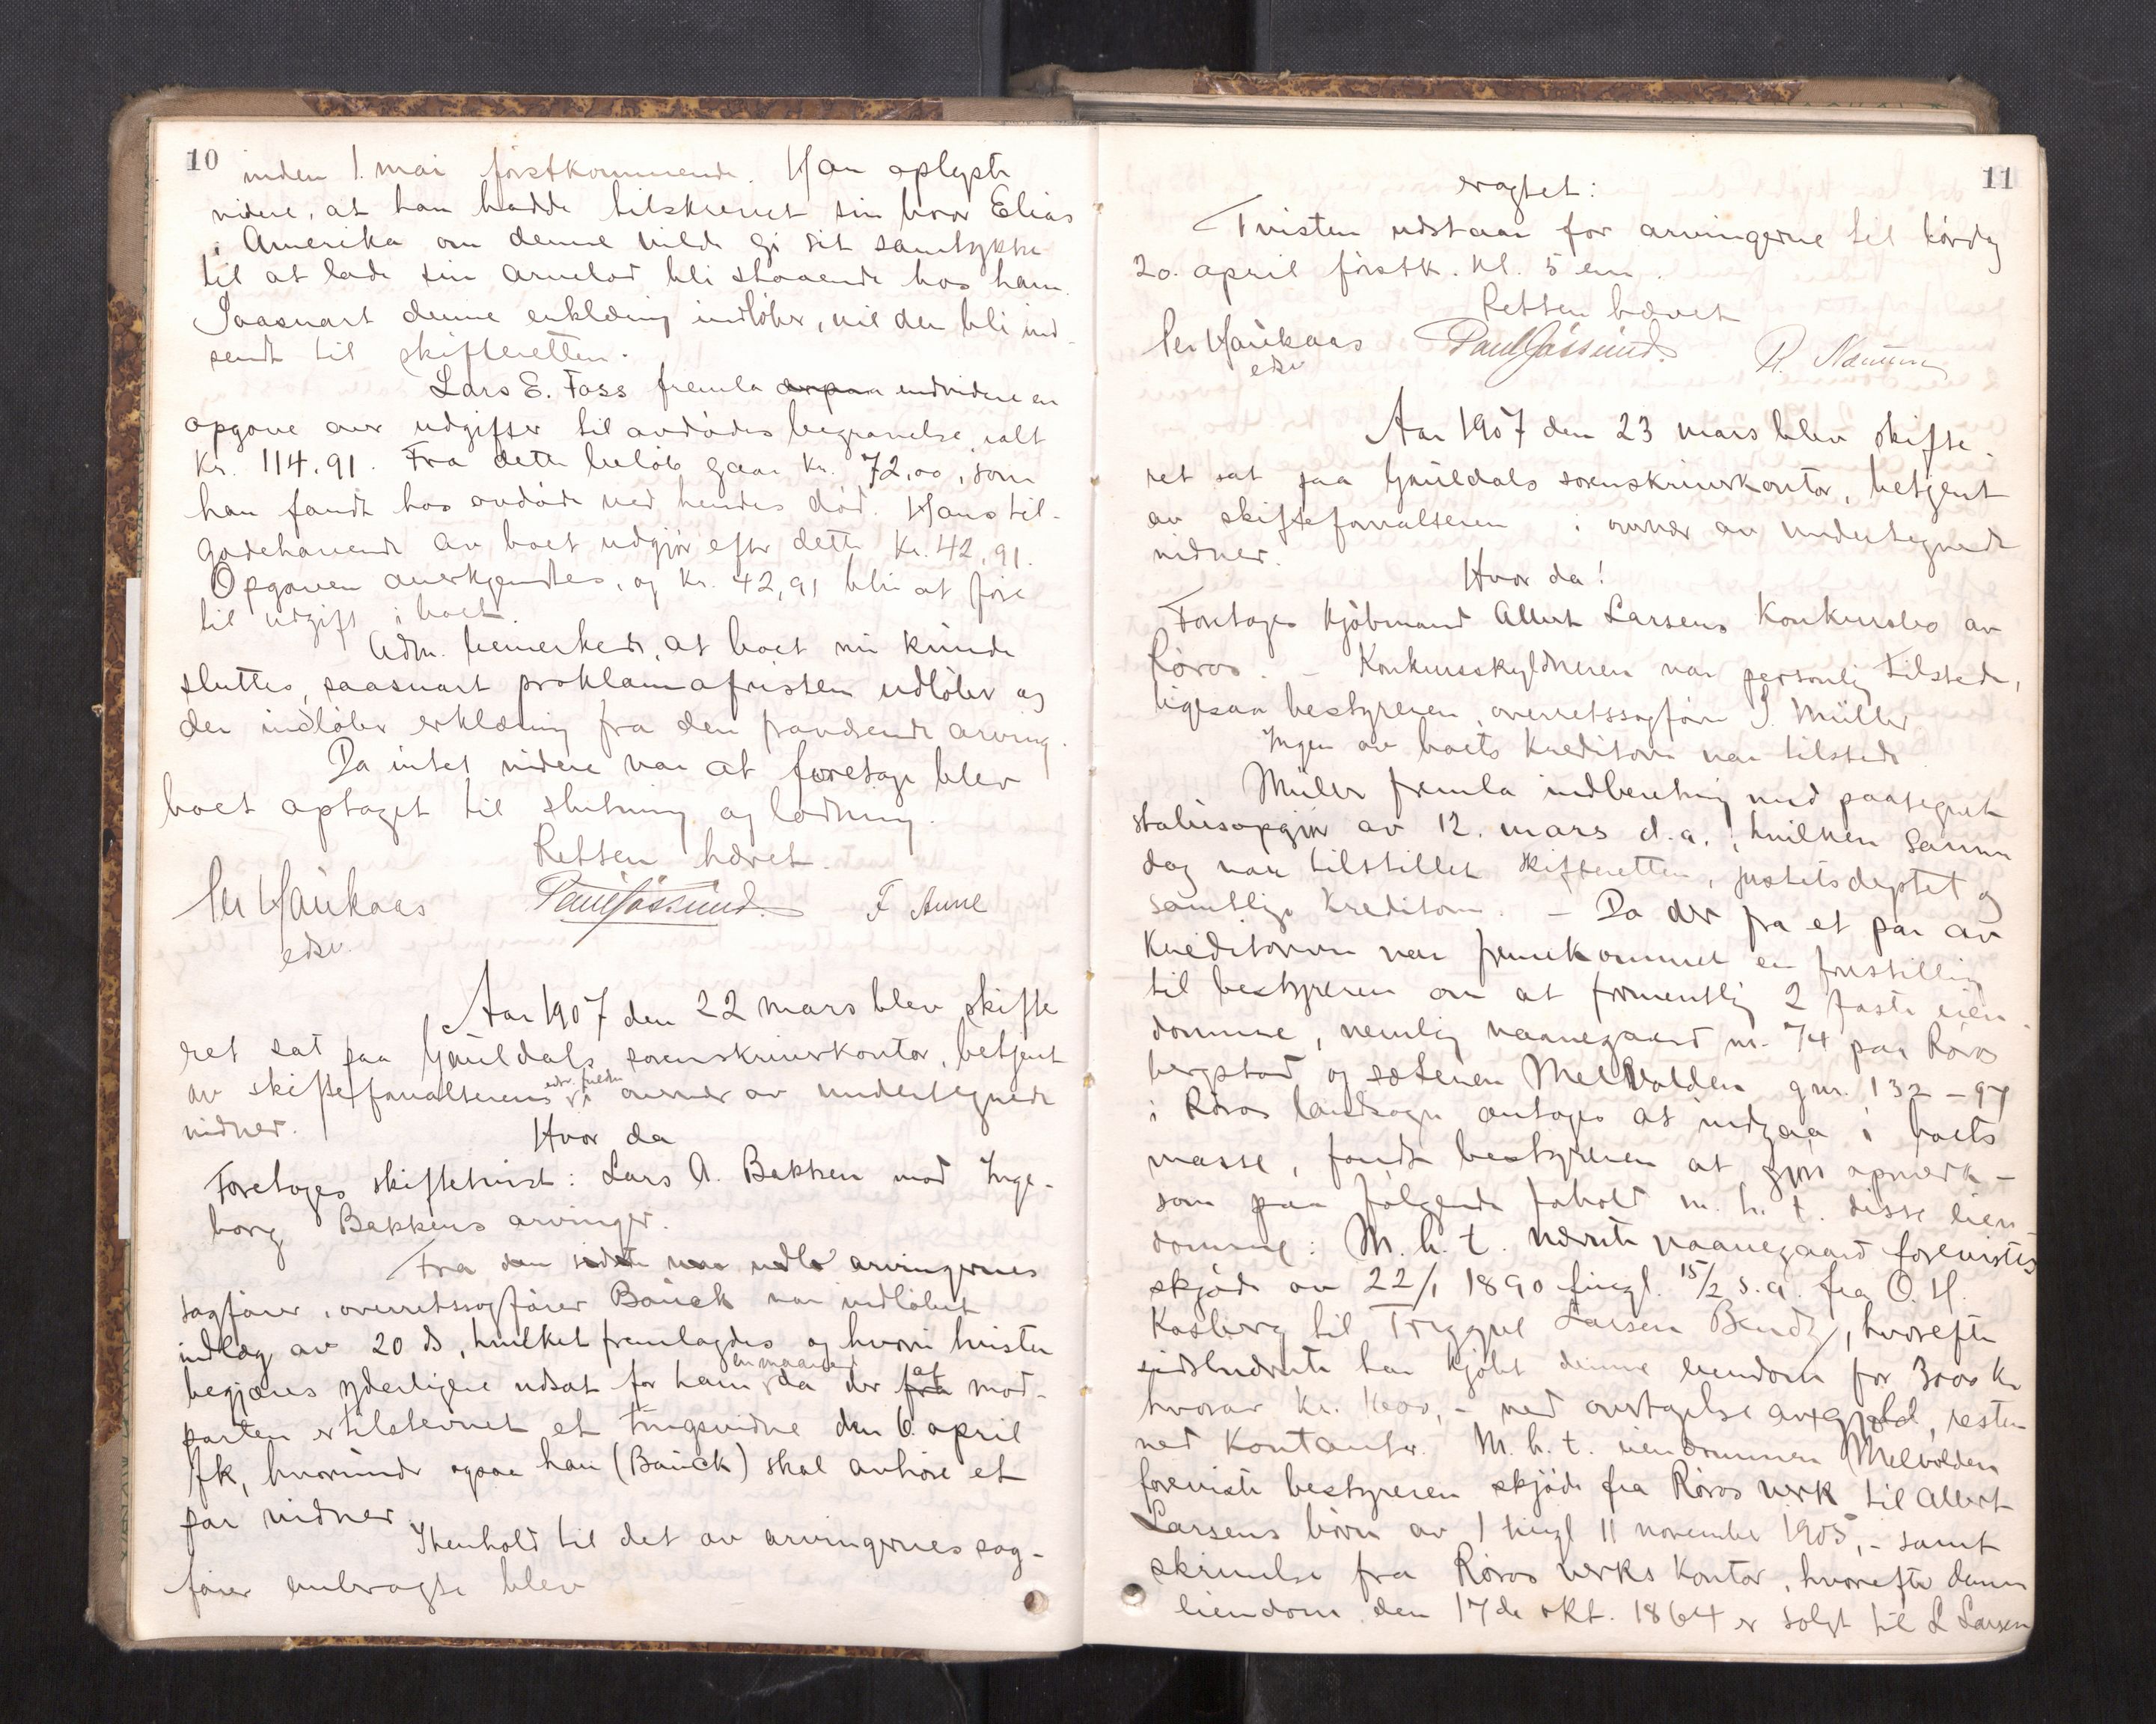 10
inden 1. mai førstkommende. Han oplyste
videre, at han hadde tilskrevet sin bror Elias
i Amerika om denne vilde gi sit samtykke
til at lade sin arvelod bli staaende hos ham.
Saasnart denne erklæring indløber, vil den bli ind-
sendt til skifteretten.
Lars E. Foss fremla endvidere en
opgave over udgifter til avdødes begravelse, ialt
Kr. 114.91. Fra dette beløb gaar Kr. 72,00, som
han fandt hos avdøde ved hendes død. Hans til-
godehavende av boet udgjør efter dette Kr. 42,91.
Opgaven anerkjendtes, og Kr. 42,91 blir at føre
til udgift i boet.
Adm. bemerkede, at boet nu kunde
sluttes, saasnart proklamafristen udløber og
der indløber erklæring fra den fraværende arving.
Da intet videre var at foretage blev
boet optaget til slutning og lodning.
Retten hævet.
Per Haukaas Paul Gåssund. F. Aune
edsv.
Aar 1907 den 22 mars blev skifte
ret sat paa Gauldals sorenskriverkontor, betjent
av skifteforvalterens edsv. fuldm. i overvær av undertegnede
vidner.
Hvor da
Foretoges skiftetvist: Lars A. Bakken mod Inge-
borg Bakkens arvinger.
Fra arvingernes
sagfører, overretssagfører Bauck var indløbet
indlæg av 20 ds, hvilket fremlagdes og hvori tvisten
begjæres yderligere udsat for ham en maaned da der af mod-
parten er tilstevnet et tingsvidne den 6. april
fk, hvorunder ogsaa han (Bauck) skal avhøre et
par vidner.
I henhold til det av arvingernes sag-
fører andragte blev
11
eragtet:
Tvisten udstaar for arvingerne til lørdag
20. april førstk. kl. 5 em.
Retten hævet
Per Haukaas Paul Gåssund. R.
edsv
Aar 1907 den 23 mars blev skifte
ret sat paa Gauldals sorenskriverkontor, betjent
av skifteforvalteren i overvær av undertegnede
vidner.
Hvor da!
Foretoges Kjøbmand Albert Larsens Konkursbo av
Røros. – Konkursskyldneren var personlig tilstede,
ligesaa bestyreren, overretssagfører J. Müller
Ingen av boets Kreditorer var tilstede
Müller fremla indberetning med paategnet
statusopgjør av 12. mars d.a., hvilken samme
dag var tilstillet skifteretten, justitsdeptet og
samtlige Kreditorer. – Da der fra et par av
Kreditorerne var fremkommet en forestilling
til bestyreren om at formentlig 2 faste eien-
domme, nemlig vaanegaard nr. 74 paa Røros
bergstad og sæteren Melvolden gnr. 132 – 97
i Røros landsogn antoges at indgaa i boets
masse, fandt bestyreren at gjøre opmerk-
som paa følgende forhold m. h. t. disse eien-
domme: M. h. t. nævnte vaanegaard forevistes
skjøde av 22/1 1890 tingl. 15/2 s.a. fra O. H.
Kosberg til Trygve Larsen Bendz, hvorefter
sidstnævnte har kjøbt denne eiendom for 3000 kr
hvorav kr. 1600,- ved overtagelse av gjæld, resten
ved Kontanter. M. h. t. eiendommen Melvolden
foreviste bestyreren skjøde fra Røros verk til Albert
Larsens børn av 1 tingl 11 november 1905,- samt
skrivelse fra Røros verks Kontor, hvorefter denne
eiendom den 17de okt. 1864 er solgt til L Larsen